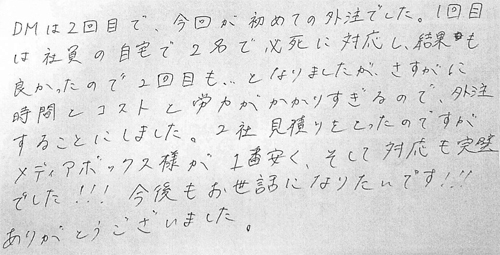 DMは2回目で、今回が初めての外注でした。1回目
は社員の自宅で2名で必死に対応し、結果も
良かったので2回目も‥となりましたが、さすがに
時間とコストと労力がかかりすぎるので、外注
することにしました。2社見積りをとったのですが
メディアボックス様が1番安く、そして対応も完璧
でした!!!今後もお世話になりたいです!!!
ありがとうございました。